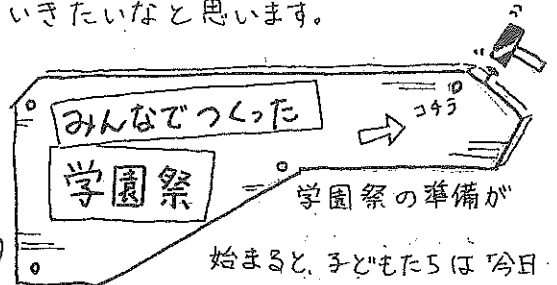 いきたいなと思います。
みんなでつくった
学園祭
コチラ
学園祭の準備が
始まると、子どもたちは「今日